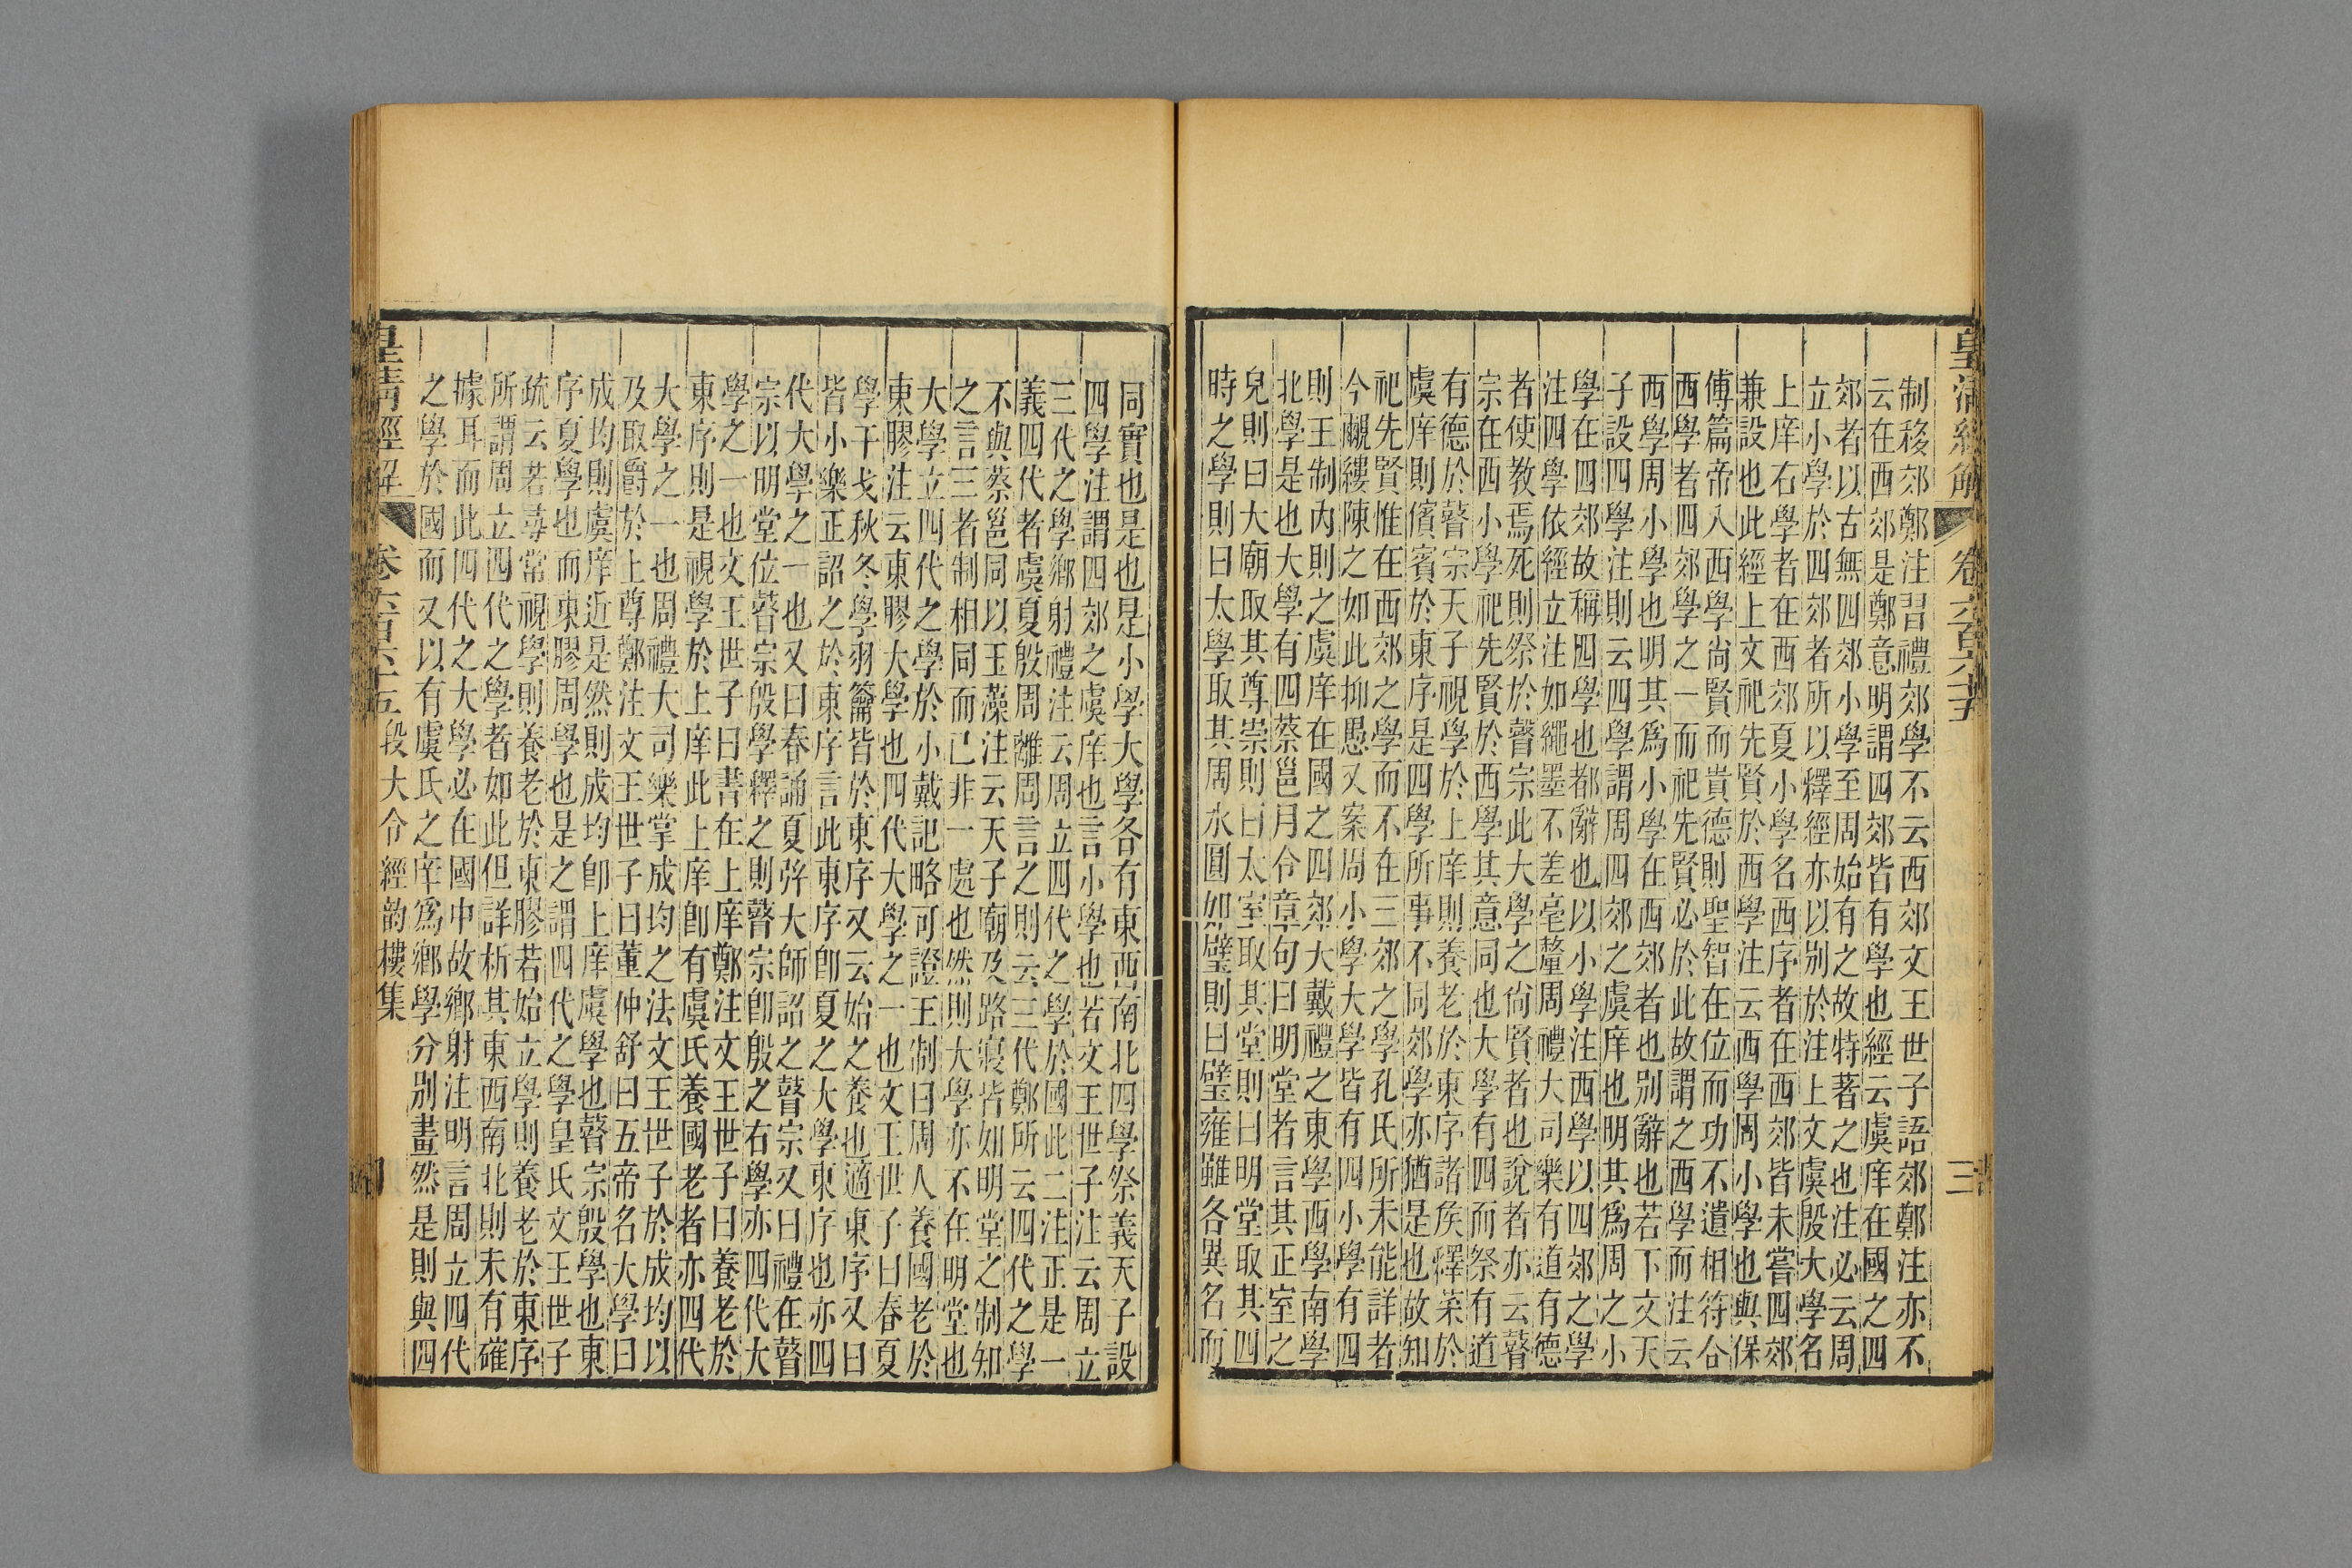 皇清經解 卷六百六十五 三
制移郊鄭注習禮郊學不云西郊文王世子語郊鄭注亦不
云在西郊是鄭意明謂四郊皆有學也經云虞庠在國之四
郊者以古無四郊小學至周始有之故特著之也注必云周
立小學於四郊者所以釋經亦以別於注上文虞殷大學名
上庠右學者在西郊夏小學名西序者在西郊皆未嘗四郊
兼設也此經上文祀先賢於西學注云西學周小學也與保
傅篇帝入西學尚賢而貴德則聖智在位而功不遺相符合
西學者四郊學之一而祀先賢必於此故謂之西學而注云
西學周小學也明其爲小學在西郊者也別辭也若下文天
子設四學注則云四學謂周四郊之虞庠也明其爲周之小
學在四郊故稱四學也都辭也以小學注西學以四郊之學
注四學依經立注如繩墨不差毫釐周禮大司樂有道有德
者使教焉死則祭於瞽宗此大學之尚賢者也說者亦云瞽
宗在西小學祀先賢於西學其意同也大學有四而祭有道
有德於瞽宗天子視學於上庠則養老於東序諸侯釋菜於
虞庠則儐賓於東序是四學所事不同郊學亦猶是也故知
祀先賢惟在西郊之學而不在三郊之學孔氏所未能詳者
今覼縷陳之如此抑愚又案周小學大學皆有四小學有四
則王制內則之虞庠在國之四郊大戴禮之東學西學南學
北學是也大學有四蔡邕月令章句曰明堂者言其正室之
皃則曰大廟取其尊崇則曰太室取其堂則曰明堂取其四
時之學則曰太學取其周水圓如璧則曰璧雍雖各異名而
同實也是也是小學大學各有東西南北四學祭義天子設
四學注謂四郊之虞庠也言小學也若文王世子注云周立
三代之學鄉射禮注云周立四代之學於國此二注正是一
義四代者虞夏殷周離周言之則云三代鄭所云四代之學
不與蔡邕同以玉藻注云天子廟及路寢皆如明堂之制知
之言三者制相同而已非一處也然則大學亦不在明堂也
大學立四代之學於小戴記略可證王制曰周人養國老於
東膠注云東膠大學也四代大學之一也文王世子曰春夏
學干戈秋冬學羽籥皆於東序又云始之養也適東序又曰
皆小樂正詔之於東序言此東序卽夏之大學東序也亦四
代大學之一也又曰春誦夏弦大師詔之瞽宗又曰禮在瞽
宗以明堂位瞽宗殷學釋之則瞽宗卽殷之右學亦四代大
學之一也文王世子曰書在上庠鄭注文王世子曰養老於
東序則是視學於上庠此上庠卽有虞氏養國老者亦四代
大學之一也周禮大司樂掌成均之法文王世子於成均以
及取爵於上尊鄭注文王世子曰董仲舒曰五帝名大學曰
成均則虞庠近是然則成均卽上庠虞學也瞽宗殷學也東
序夏學也而東膠周學也是之謂四代之學皇氏文王世子
疏云若尋常視學則養老於東膠若始立學則養老於東序
所謂周立四代之學者如此但詳析其東西南北則未有確
據耳而此四代之大學必在國中故鄉射注明言周立四代
之學於國而又以有虞氏之庠爲鄉學分別畫然是則與四
皇清經解 卷六百六十五 段大令經韵樓集